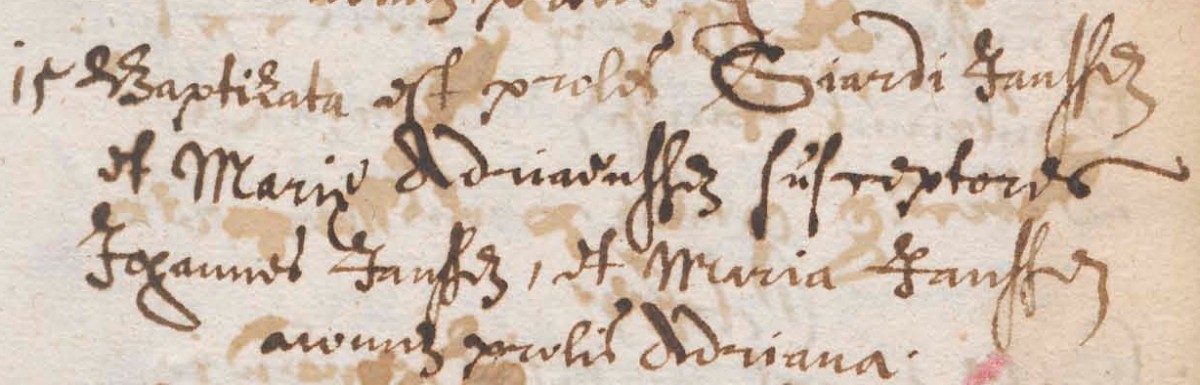 15 Baptizata est proles Siardi Janssen
et Marie Adriaenssen susceptores
Joannes Janssen, et Maria Janssen
nomen prolis Adriana.